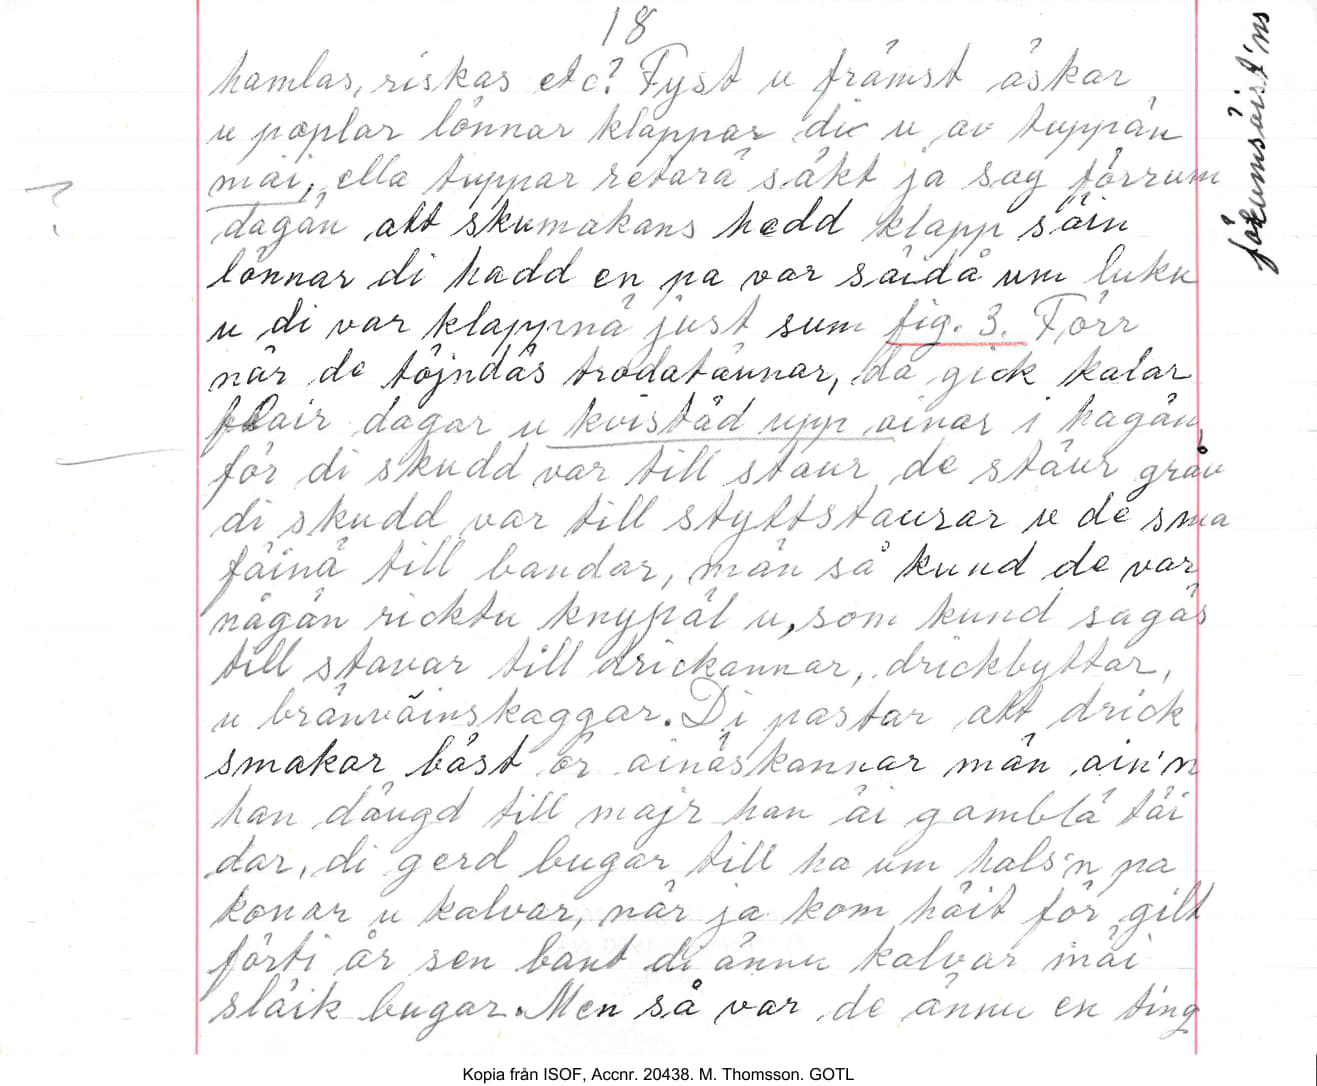 18
hamlas, riskas etc? Fyst u främst äskar
u poplar lönnar klappar di u av tuppän
mäi, ella tuppar retarä säkt ja sag förrum
dagän att skumakans hadd klapp säin
lönnar di hadd en pa var säidå um luku
u di var klappnä just sum fig. 3. Förr
när de töjndäs trodatäunar, da gick kalar
flair dagar u kvistäd upp ainar i hagän
för di skudd var till staur de stäur gräu
di skudd var till styttstaurar u de sma
fäinä till bandar, män så kund de var
nägän ricktu knypäl u, som kund sagäs
till stavar till drickannar, drickbyttar,
u bränväinskaggar. Di pastar att drick
smakar bäst ör ainäskannar män ain'n
han däugd till majr han äi gamblä täi
dar, di gerd bugar till ha um hals'n pa
konar u kalvar, när ja kom häit för gilt
förti år sen bant di ännu kalvar mäi
släik bugar. Men så var de ännu en ting
förumsäist'ns
Kopia från ISOF, Accnr. 20438. M. Thomsson. GOTL